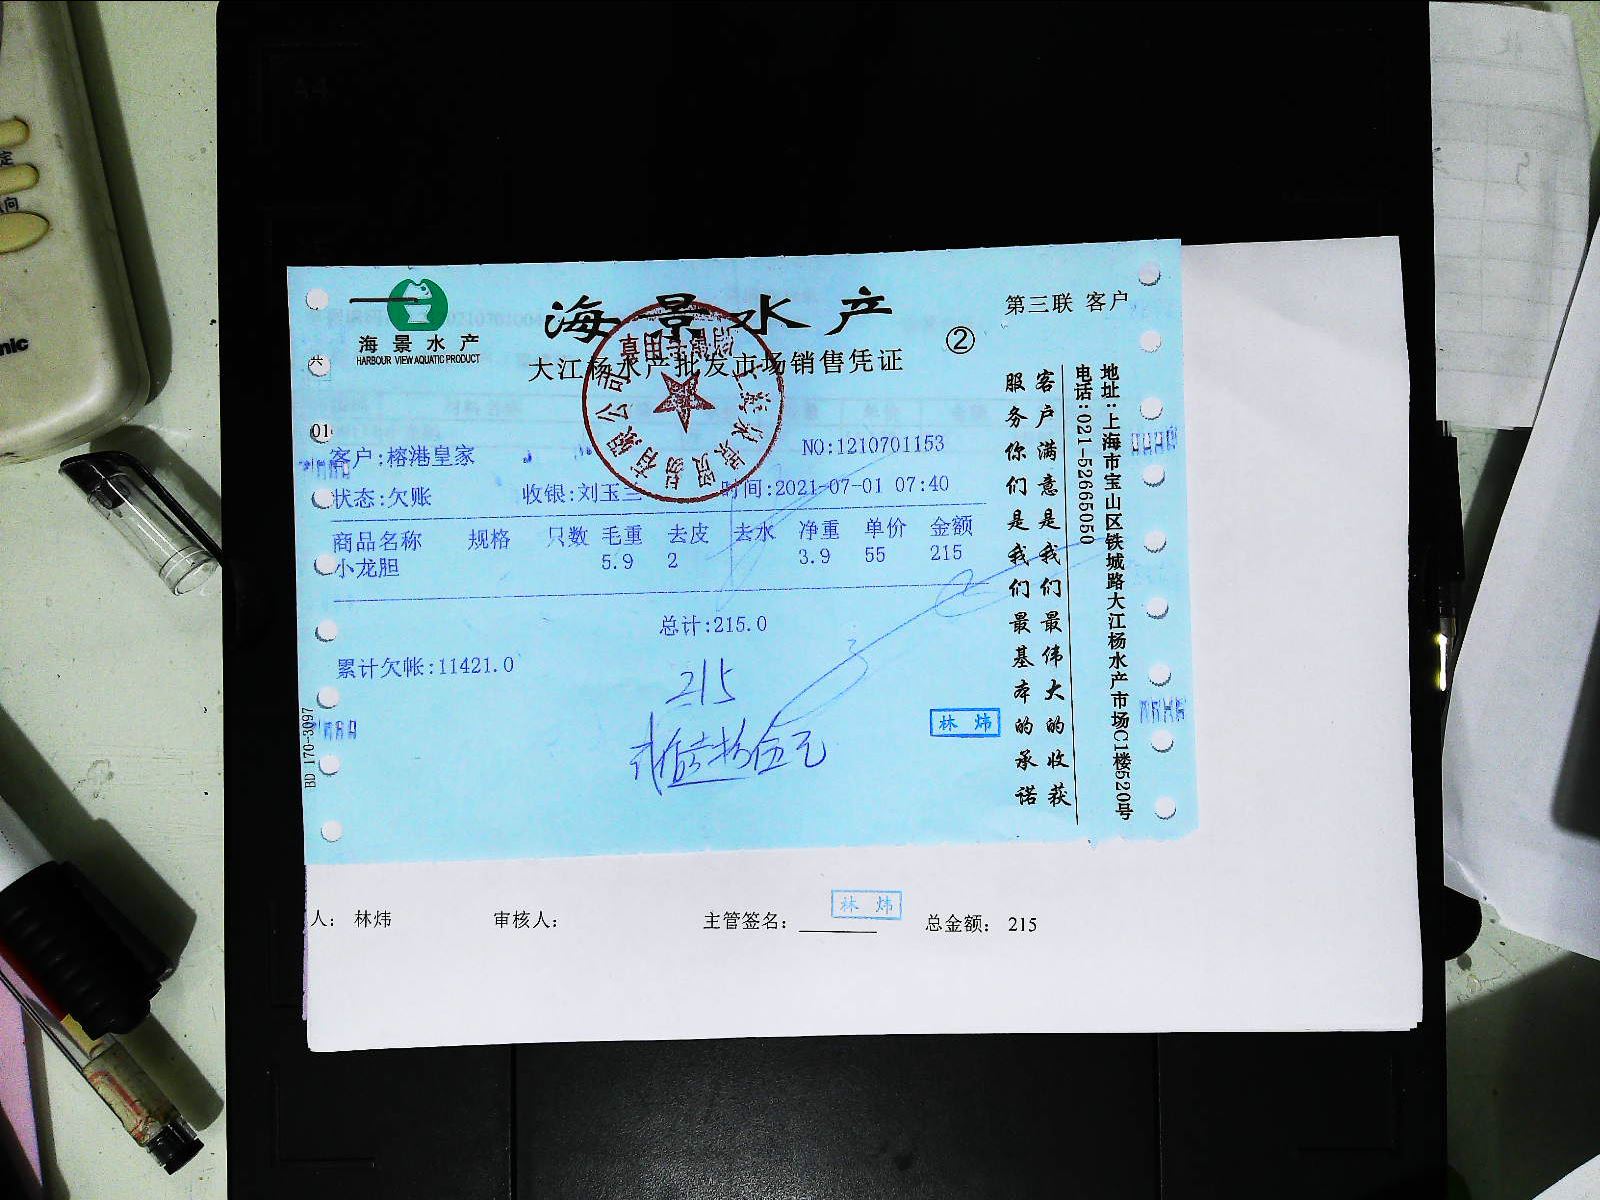 海景水产
HARBOUR VIEW AQUATIC PRODUCT
海景水产
大江杨水产批发市场销售凭证
②
第三联 客户
01
客户:榕港皇家
NO:1210701153
状态:欠账 收银:刘玉兰 时间:2021-07-01 07:40
商品名称 规格 只数 毛重 去皮 去水 净重 单价 金额
小龙胆 5.9 2 3.9 55 215
总计:215.0
累计欠帐:11421.0
215
林 炜
地址:上海市宝山区铁城路大江杨水产市场C1楼520号
电话:021-52665050
客户满意是我们最伟大的收获
服务你们是我们最基本的承诺
BD 170-3097
人: 林炜 审核人: 主管签名: 林 炜 总金额: 215